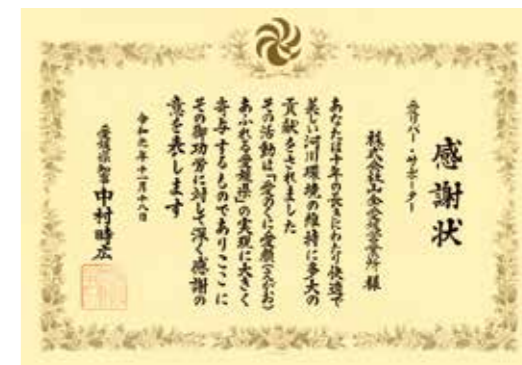 感謝状
愛リバー・サポーター
株式会社山全愛媛営業所 様
あなたは十年の長きにわたり快適で
美しい河川環境の維持に多大の
貢献をされました
その活動は「愛のくに愛顔(えがお)
あふれる愛媛県」の実現に大きく
寄与するものでありここに
その御功労に対して深く感謝の
意を表します
令和元年十一月十八日
愛媛県知事 中村時広